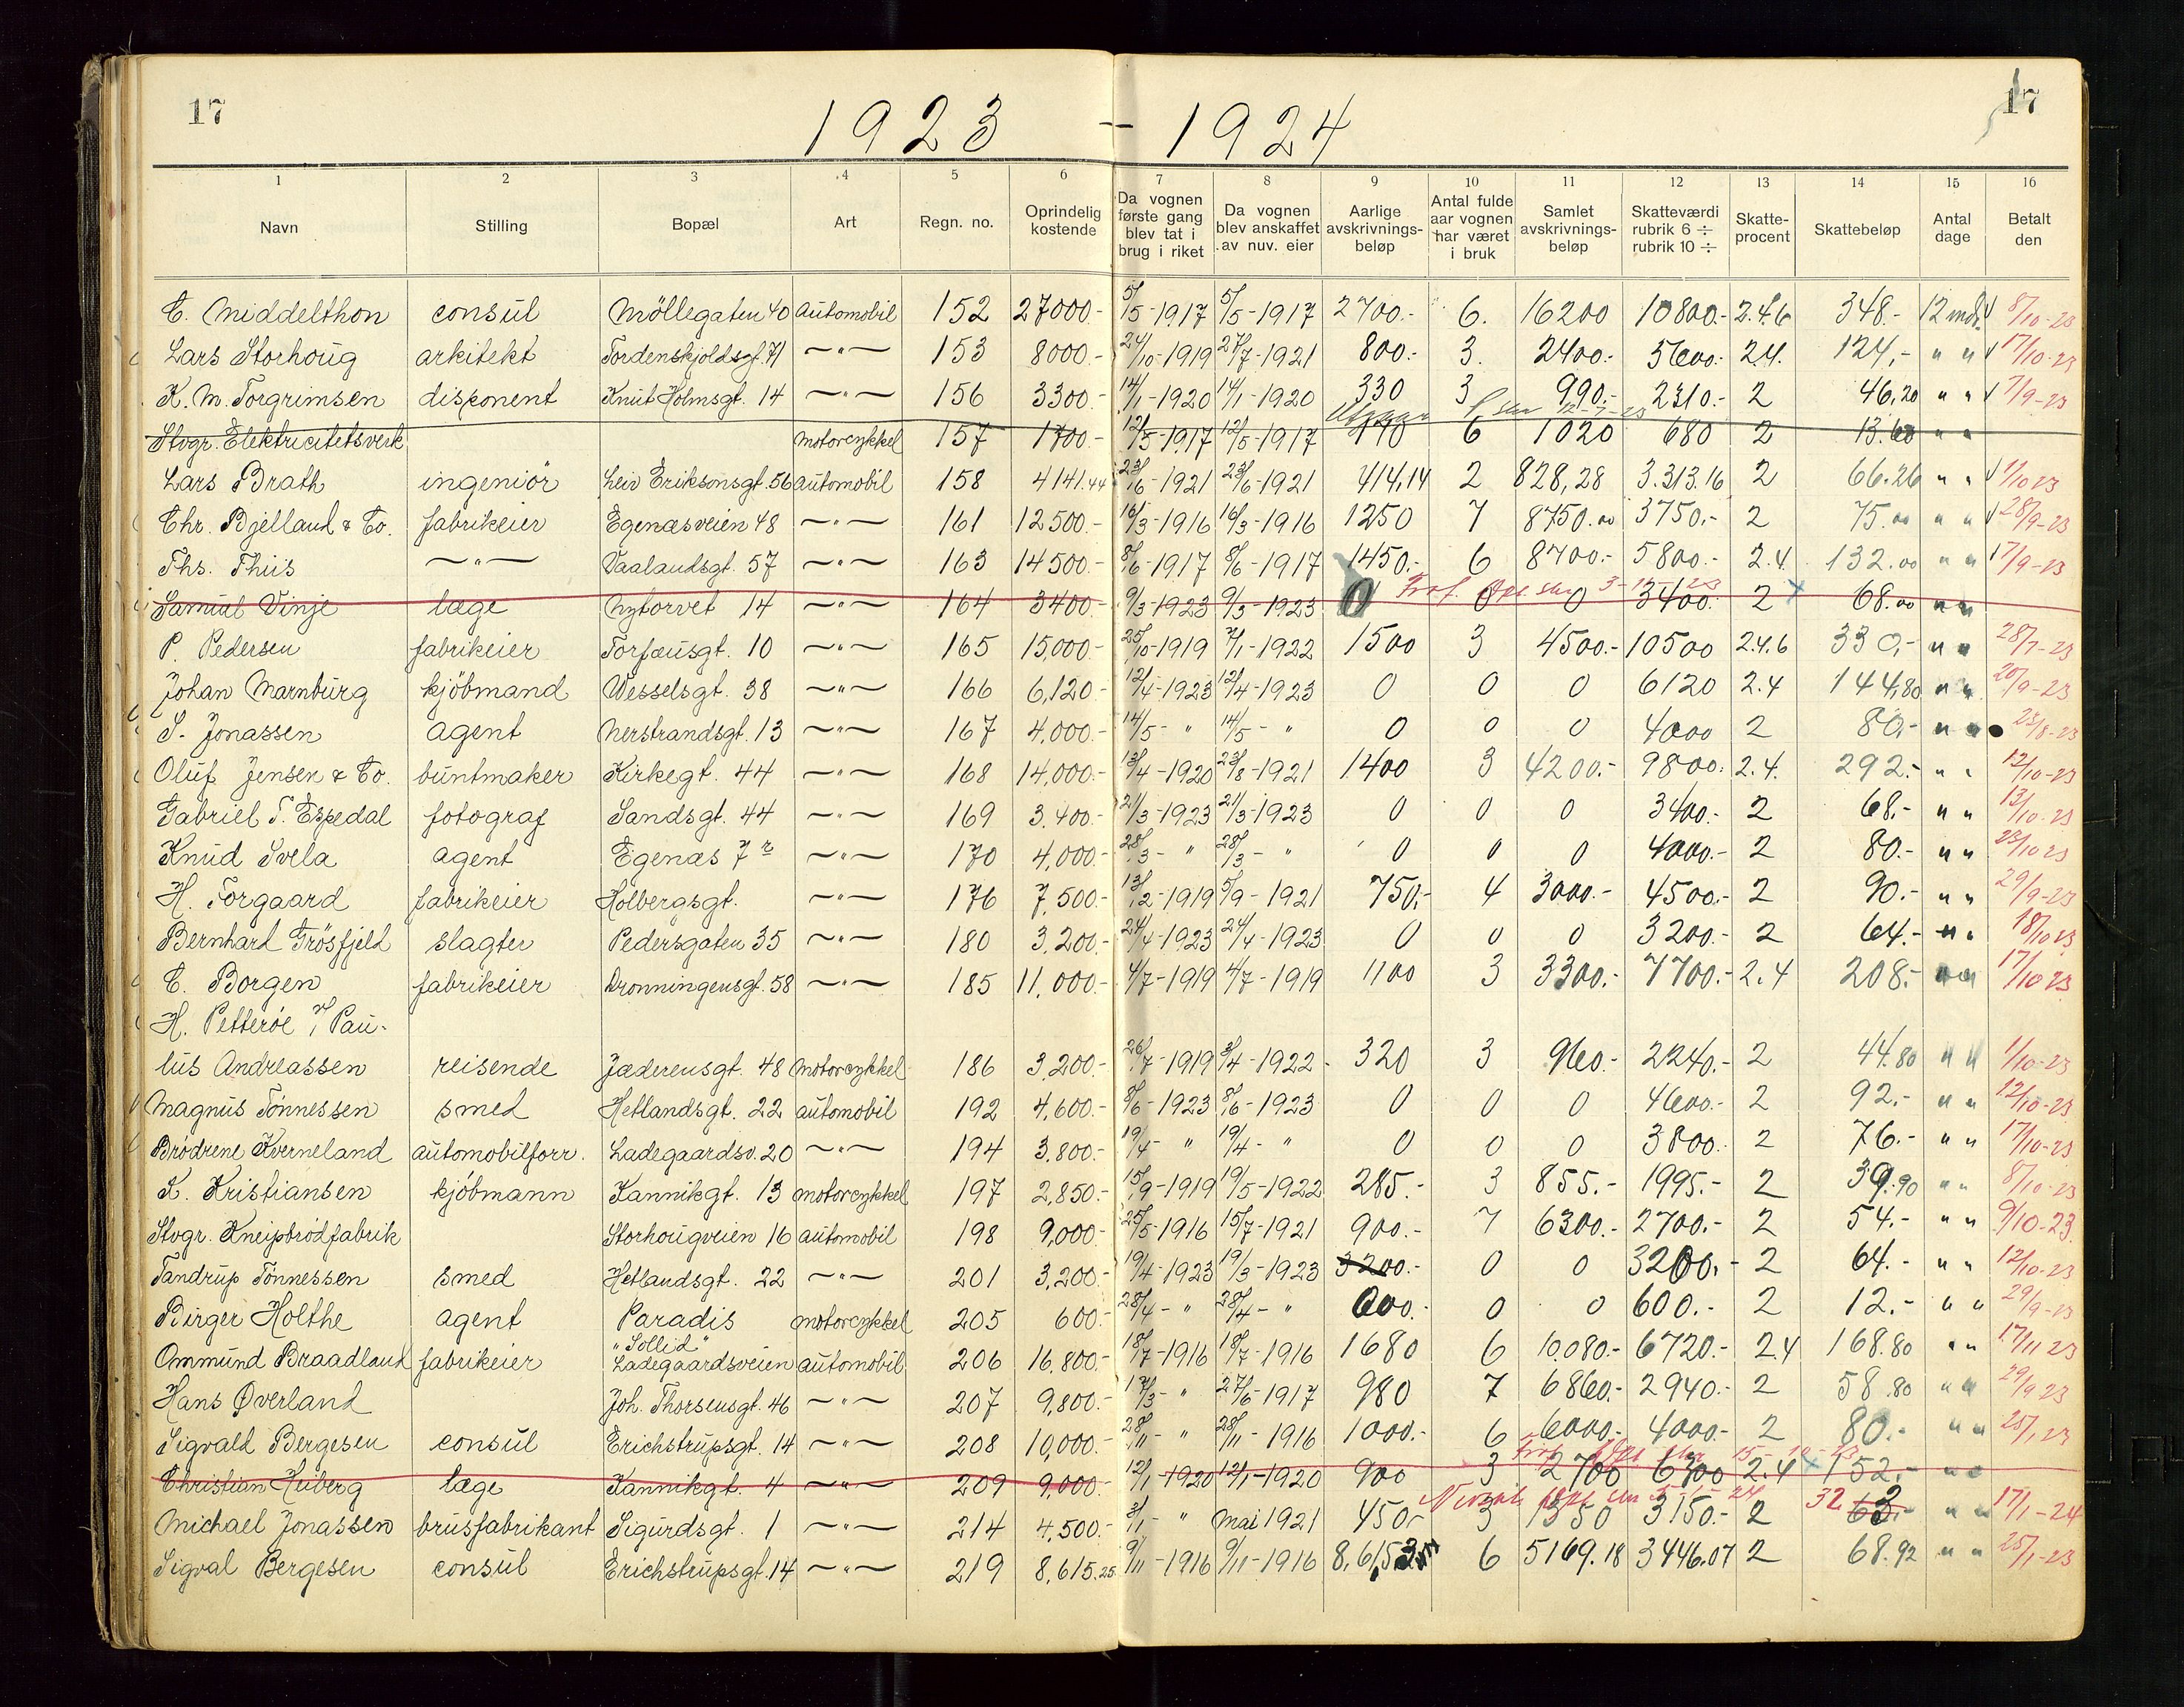 17
1923 - 1924
17
1 2 3 4 5 6 7 8 9 10 11 12 13 14 15 16
Navn Stilling Bopæl Art Regn. no. Oprindelig kostende Da vognen første gang blev tat i brug i riket Da vognen blev anskaffet av nuv. eier Aarlige avskrivnings-beløp Antal fulde aar vognen har været i bruk Samlet avskrivnings-beløp Skatteværdi rubrik 6 ÷ rubrik 10 ÷ Skatte-procent Skattebeløp Antal dage Betalt den
C. Middelthon consul Möllegaten 40 automobil 152 27000.- 5/5-1917 5/5-1917 2700.- 6. 16200 10800.- 2.4.6 348.- 12 mdr. 8/10-23
Lars Storhoug arkitekt Tordenskjoldsgt. 71 -"- 153 8000.- 24/10-1919 27/7-1921 800.- 3. 2400.- 5600.- 2.4. 124.- " " 17/10-23
K. M. Torgrimsen disponent Knut Holmsgt. 14 -"- 156 3300.- 14/1-1920 14/1-1920 330 3 990.- 2310.- 2 46,20 " " 7/9-23
Stvgr. Elektricitetsverk motorcykkel 157 1700.- 12/5-1917 12/5-1917 170 6 1020 680 2 13.60 " "
Lars Brath ingeniör Leiv Eriksonsgt. 56 automobil 158 4141.44 23/6-1921 23/6-1921 414,14 2 828,28 3.313.16 2 66.26 " " 1/10 23
Chr. Bjelland & Co. fabrikeier Egenæsveien 48 -"- 161 12500.- 16/3-1916 16/3-1916 1250 7 8750.00 3750.- 2 75.00 " " 28/9-23
Ths. Thiis -"- Vaalandsgt. 57 -"- 163 14500.- 8/6-1917 8/6-1917 1450.- 6 8700.- 5800.- 2.4. 132.00 " " 17/9-23
Samuel Vinje læge Nytorvet 14 -"- 164 3400.- 9/3-1923 9/3-1923 0 0 0 3400.- 2 68.00 " "
P. Pedersen fabrikeier Torfæusgt. 10 -"- 165 15,000.- 25/10-1919 7/1-1922 1500 3 4500.- 10500 2.4.6 330.- " " 28/7-23
Johan Marnburg kjöbmand Wesselsgt. 38 -"- 166 6,120.- 12/4-1923 12/4-1923 0 0 0 6120 2.4 144,80 " " 20/9-23
S. Jonassen agent Nerstrandsgt. 13 -"- 167 4,000.- 14/5- " 14/5- " 0 0 0 4000 2 80,- " " 23/8-23
Oluf Jensen & Co. buntmaker Kirkegt. 44 -"- 168 14,000.- 13/4-1920 23/8-1921 1400 3 4200.- 9800. 2.4. 292.- " " 12/10-23
Gabriel T. Espedal fotograf Sandsgt. 44 -"- 169 3.400.- 21/3-1923 21/3-1923 0 0 0 3400.- 2 68.- " " 13/10-23
Knud Svela agent Egenæs 7 -"- 170 4,000.- 28/3- " 28/3- " 0 0 0 4000.- 2 80.- " " 23/10 23
H. Torgaard fabrikeier Holbergsgt. -"- 176 7,500.- 13/2-1919 5/9-1921 750.- 4 3000.- 4500.- 2 90.- " " 29/9-23
Bernhard Grösfjeld slagter Pedersgaten 35 -"- 180 3,200.- 24/4-1923 24/4-1923 0 0 0 3200.- 2 64.- " " 18/10 23
C. Borgen fabrikeier Dronningensgt. 58 -"- 185 11,000.- 4/7-1919 4/7-1919 1100 3 3300.- 7700.- 2.4 208.- " " 17/10 23
H. Petterøe v/ Pau-
lus Andreassen reisende Jæderensgt. 48 motorcykkel 186 3,200.- 26/7-1919 3/4-1922 320 3 960.- 2240.- 2 44.80 " " 1/10-23
Magnus Tönnessen smed Hetlandsgt. 22 automobil 192 4,600.- 8/6-1923 8/6-1923 0 0 0 4600.- 2 92.- " " 12/10-23
Brödrene Kverneland automobilforr. Ladegaardsv. 20 -"- 194 3.800.- 19/4- " 19/4- " 0 0 0 3800.- 2 76.- " " 17/10-23
K. Kristiansen kjöbmann Kannikgt. 13 motorcykkel 197 2,850.- 15/9-1919 19/5-1922 285.- 3 855.- 1995.- 2 39.90 " " 8/10-23
Stvgr. Kneipbrödfabrik Storhougveien 16 automobil 198 9,000.- 25/5-1916 15/7-1921 900.- 7 6300.- 2700.- 2 54.- " " 9/10-23
Tandrup Tönnessen smed Hetlandsgt. 22 -"- 201 3,200.- 19/4-1923 19/3-1923 3200.- 0 0 3200.- 2 64.- " " 12/10-23
Birger Holthe agent Paradis motorcykkel 205 600.- 28/4- " 28/4- " 600.- 0 0 600.- 2 12.- " " 29/9-23
Ommund Braadland fabrikeier "Sollid" Ladegaardsveien automobil 206 16,800.- 18/7-1916 18/7-1916 1680 6 10.080.- 6720.- 2.4 168.80 " " 17/11 23
Hans Øverland Joh. Thorsensgt. 46 -"- 207 9,800.- 17/3- " 27/6-1917 980 7 6860.- 2940.- 2 58.80 " " 29/9 23
Sigvald Bergesen consul Erichstrupsgt. 14 -"- 208 10,000.- 28/11- " 28/11-1916 1000.- 6 6000.- 4000.- 2 80.- " " 25/1 23
Christian Heiberg læge Kannikgt. 4 -"- 209 9,000.- 12/1-1920 12/1-1920 900 3 2700 6300 2.4 152.- " "
Michael Jonassen brusfabrikant Sigurdsgt. 1 -"- 214 4.500.- 3/1- " mai 1921 450.- 3 1350 3150.- 2 32 63.- " " 17/1-24
Sigval Bergesen consul Erichstrupsgt. 14 -"- 219 8,615.25 9/11-1916 9/11-1916 8,615 6 5169.18 3446.07 2 68.92 " " 25/1-23